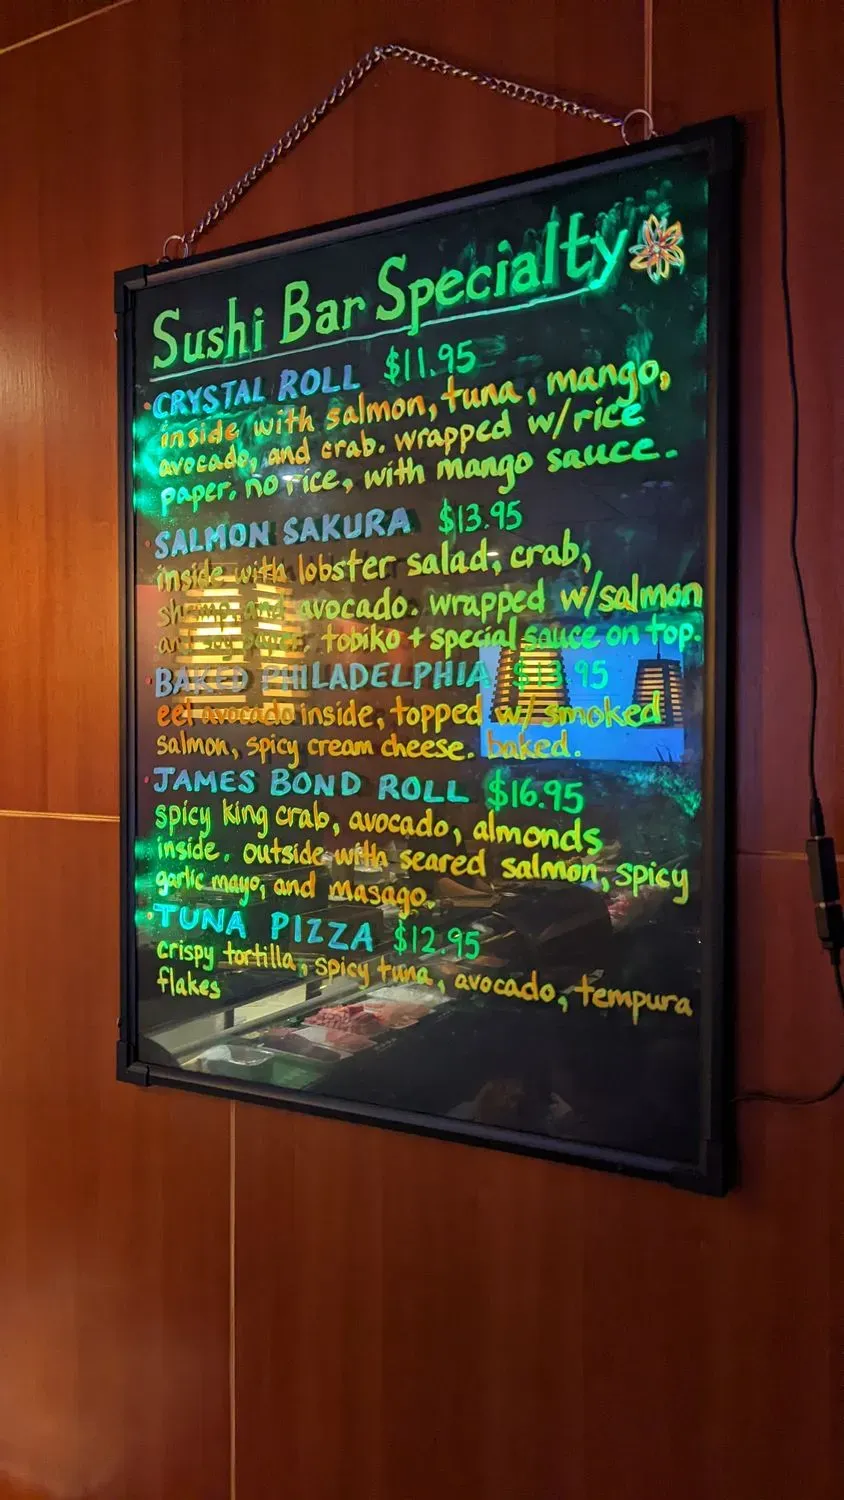 Sushi Bar Specialty
CRYSTAL ROLL $11.95
inside with salmon, tuna, mango,
avocado, and crab. wrapped w/rice
paper. no rice, with mango sauce.
SALMON SAKURA $13.95
inside with lobster salad, crab,
shrimp, and avocado. wrapped w/salmon
and soy paper. tobiko + special sauce on top.
BAKED PHILADELPHIA $13.95
eel avocado inside, topped w/ smoked
salmon, spicy cream cheese. baked.
JAMES BOND ROLL $16.95
spicy king crab, avocado, almonds
inside. outside with seared salmon, spicy
garlic mayo, and masago.
TUNA PIZZA $12.95
crispy tortilla, spicy tuna, avocado, tempura
flakes